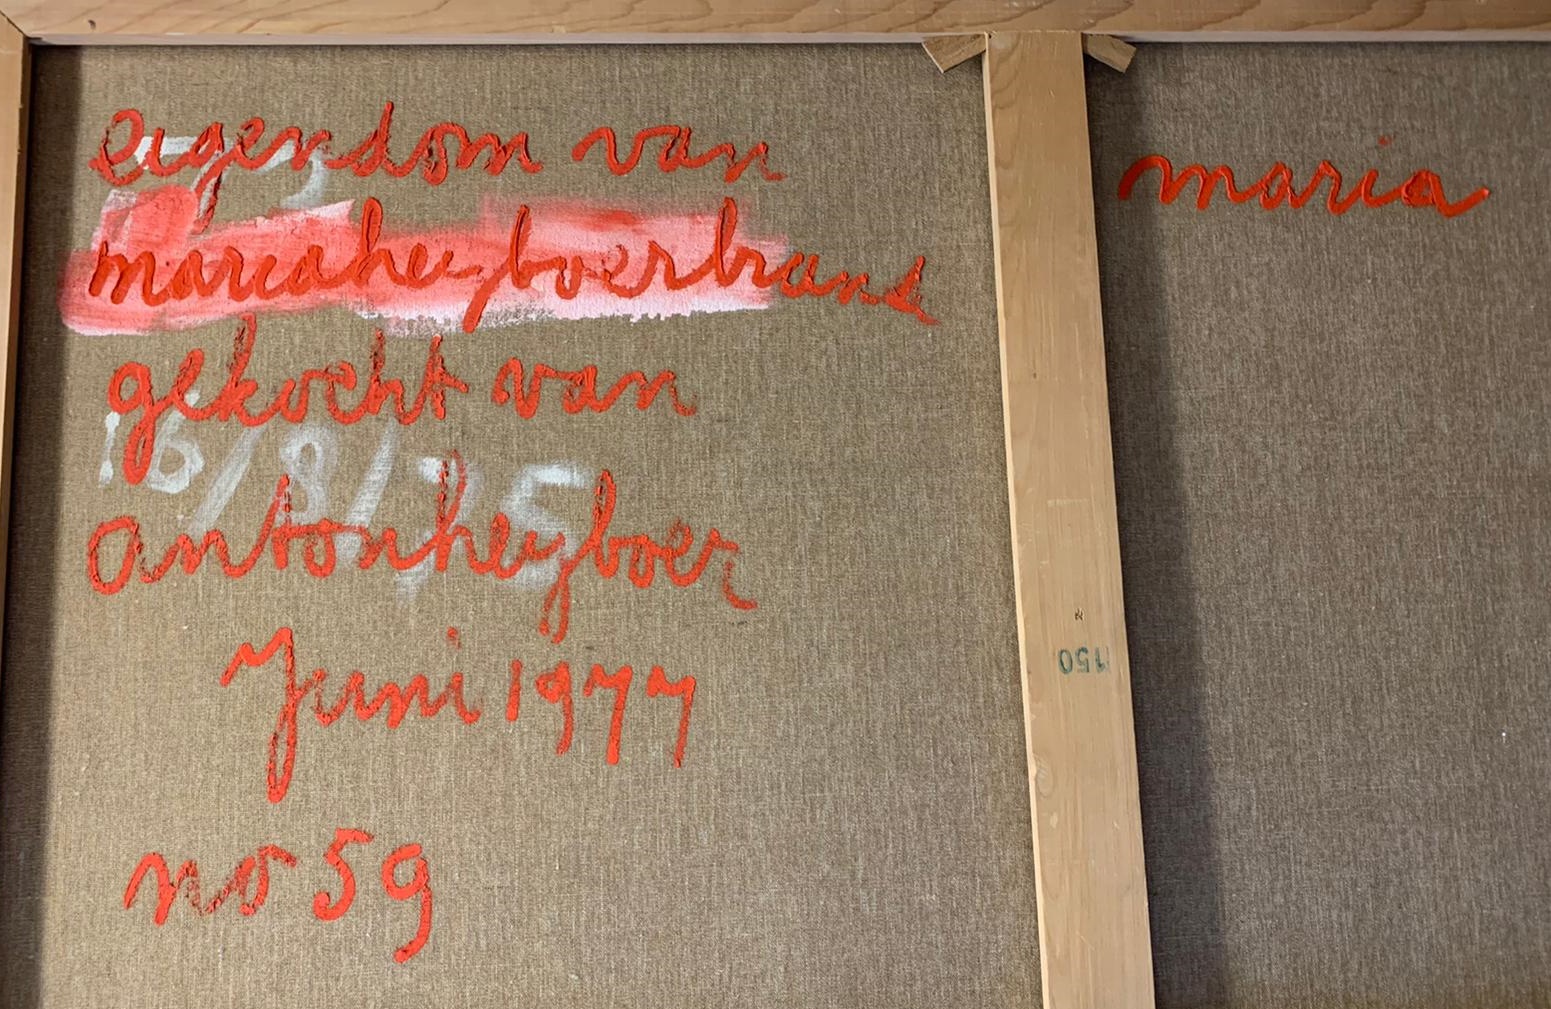 eigendom van
mariaheyboerbrand
gekocht van
16/8/75
antonheyboer
Juni 1977
no 59
maria
150